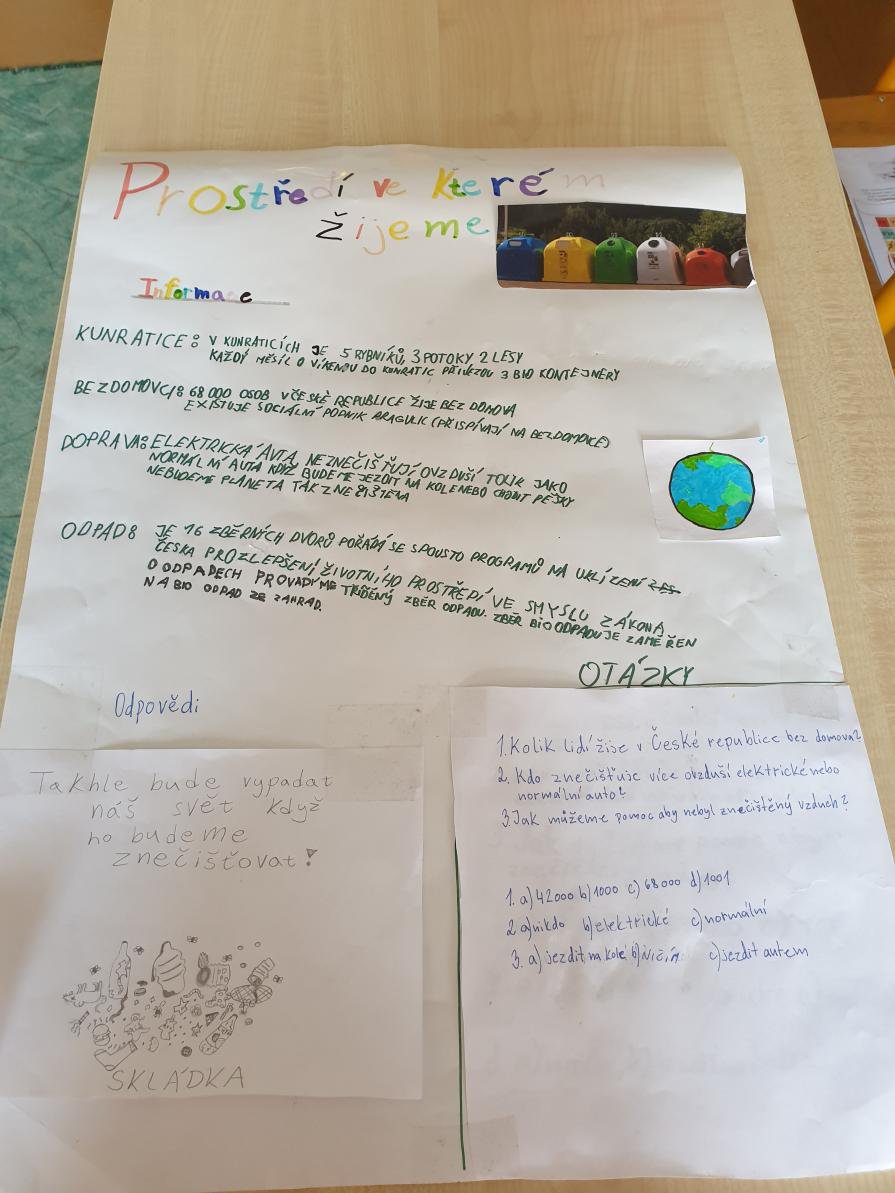 Prostředí ve kterém
žijeme
Informace
KUNRATICE: V KUNRATICÍCH JE 5 RYBNÍKŮ, 3 POTOKY 2 LESY
KAŽDÝ MĚSÍC O VÍKENDU DO KUNRATIC PŘIVEZOU 3 BIO KONTEJNÉRY
BEZDOMOVCI: 68 000 OSOB V ČESKÉ REPUBLICE ŽIJE BEZ DOMOVA
EXISTUJE SOCIÁLNÍ PODNIK (PŘISPÍVAJÍ NA BEZDOMOVCE)
DOPRAVA: ELEKTRICKÁ ÁUTA NEZNEČIŠŤUJÍ OVZDUŠÍ TOLIK JAKO
NORMÁLNÍ AUTA KDYŽ BUDEME JEZDIT NA KOLE NEBO CHODIT PĚŠKY
NEBUDEME PLANETA TAK ZNEČIŠTĚNA
ODPAD: JE 16 ZBĚRNÝCH DVORŮ POŘÁDÁ SE SPOUSTO PROGRAMŮ NA UKLÍZENÍ
ČESKA PRO ZLEPŠENÍ ŽIVOTNÍHO PROSTŘEDÍ VE SMYSLU ZÁKONA
O ODPADECH PROVADÝME TŘÍDĚNÝ ZBĚR ODPADU. ZBĚR BIO ODPADU JE ZAMĚŘEN
NA BIO ODPAD ZE ZAHRAD.
OTÁZKY
Odpovědi
Takhle bude vypadat
náš svět když
ho budeme
znečišťovat!
SKLÁDKA
1. Kolik lidí žije v České republice bez domova?
2. Kdo znečišťuje více ovzduší elektrické nebo
normální auto?
3. Jak můžeme pomoc aby nebyl znečištěný vzduch?
1. a) 42000 b) 1000 c) 68000 d) 1001
2 a) nikdo b) elektrické c) normální
3. a) jezdit na kole b) c) jezdit autem